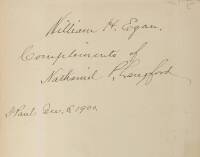 William H. Egan.
Compliments of
Nathaniel P. Langford
St Paul Dec. 6 1900.